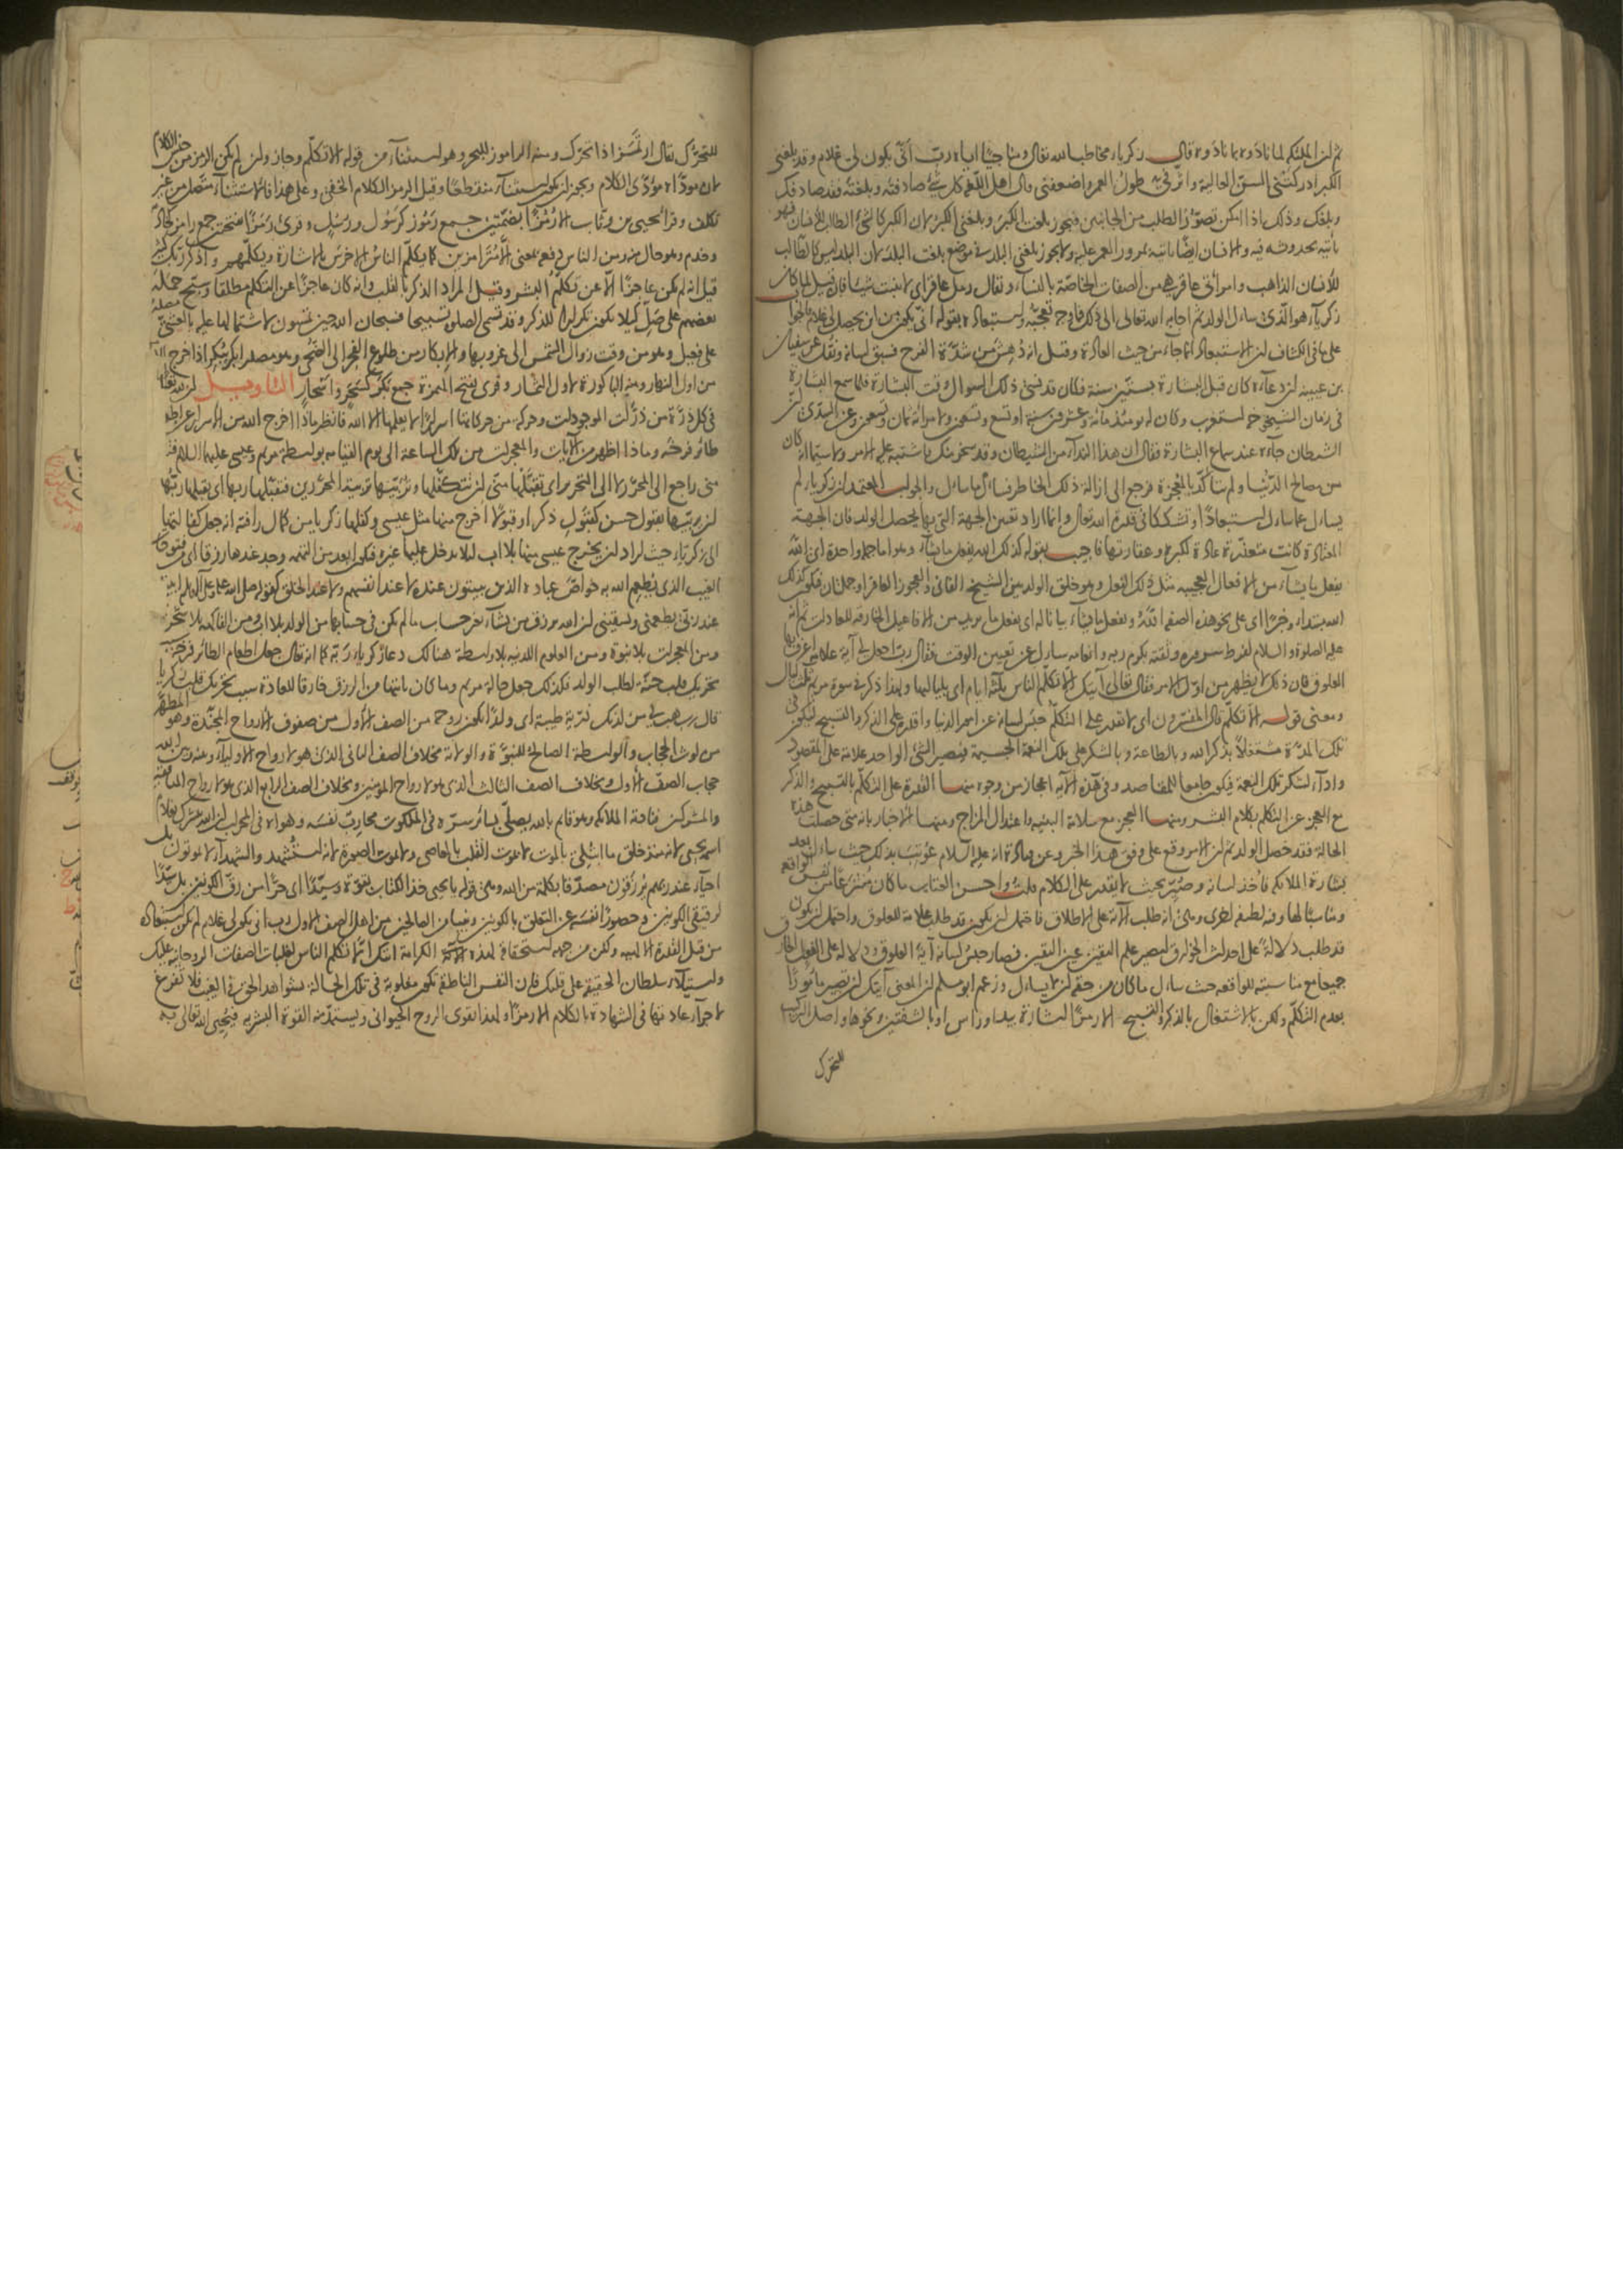 ثم ان الملئكة لما نادوه بما نادوه قال زكرياء مخاطبا لله تعالى ومناجيا اياه رب أنى يكون لي غلام وقد بلغني
الكبر ادركتني السن العالية واثر في طول العمر واضعفني قال اهل اللغة كل شيء صادفته وبلغته فقد صادفك
وبلغك وذلك اذا امكن تصور الطلب من الجانبين فيجوز بلغت الكبر وبلغني الكبر لان الكبر كالشيء الطالب للانسان فهو
يأتيه بحدوثه فيه والانسان ايضا يأتيه بمرور العمر عليه ولا يجوز بلغني البلد في موضع بلغت البلد لان البلد ليس كالطالب
للانسان الذاهب وامرأتي عاقر هي من الصفات الخاصة بالنساء ويقال رمل عاقر اي لا ينبت شيئا فان قيل لما كان
زكرياء هو الذي سأل الولد ثم اجابه الله تعالى الى ذلك فما وجه تعجبه واستبعاده بقوله انى يكون من اين يحصل لي غلام فالجواب
على ما في الكشاف ان الاستبعاد انما جاء من حيث العادة وقيل انه دهش من شدة الفرح فسبق لسانه ونقل عن سفيان
بن عيينة ان دعاءه كان قبل البشارة بستين سنة فكان قد نسي ذلك السؤال وقت البشارة فلما سمع البشارة
في زمان الشيخوخة استغرب وكان له يومئذ مائة وعشرون سنة او تسع وتسعون ولامرأته ثمان وتسعون وعن السدي ان
الشيطان جاءه عند سماع البشارة فقال ان هذا النداء من الشيطان وقد سخر منك فاشتبه عليه الامر ولا سيما انه كان
من مصالح الدنيا ولم يتأكد بالمعجزة فرجع الى ازالة ذلك الخاطر فسأل ما سأل والجواب المعتمد ان زكرياء لم
يسأل عما سأل استبعادا او تشككا في قدرة الله تعالى وانما اراد تعيين الجهة التي بها يحصل الولد فان الجهة
المعتادة كانت متعذرة عادة لكبره وعقارتها فاجيب بقوله كذلك الله يفعل ما يشاء وهو اما جملة واحدة اي الله
يفعل ما يشاء من الافعال العجيبة مثل ذلك الفعل وهو خلق الولد من الشيخ الفاني والعجوز العاقر او جملتان فيكون كذلك
الله مبتداء وخبرا اي على نحو هذه الصفة الله ويفعل ما يشاء بيانا له اي يفعل ما يريد من الافاعيل الخارقة للعادات ثم انه
عليه الصلوة والسلام لفرط سروره وثقته بكرم ربه وانعامه سأل عن تعيين الوقت فقال رب اجعل لي آية علامة اعرف بها
العلوق فان ذلك لا يظهر من اول الامر فقال تعالى آيتك الا تكلم الناس ثلثة ايام اي بلياليها ولهذا ذكر في سورة مريم ثلث ليال
ومعنى قوله الا تكلم قال المفسرون اي لا تقدر على التكلم حبس لسانه عن امر الدنيا واقدره على الذكر والتسبيح ليكون في
تلك المدة مشتغلا بذكر الله وبالطاعة وبالشكر على تلك النعمة الجسيمة فيصير الشيء الواحد علامة على المقصود
واداء لشكر تلك النعمة فيكون جامعا للمقاصد وفي هذه الآية اعجاز من وجوه منها القدرة على التكلم بالتسبيح والذكر
مع العجز عن التكلم بكلام البشر ومنها العجز مع سلامة البنية واعتدال المزاج ومنها الاخبار بانه متى حصلت هذه
الحالة فقد حصل الولد ثم ان الامر وقع على وفق هذا الخبر وعن قتادة انه عليه السلام عوتب بذلك حيث سأل بعد
بشارة الملائكة فاخذ لسانه وصير بحيث لا يقدر على الكلام قلت واحسن العتاب ما كان منتزعا من نفس الواقعة
ومناسبا لها وفيه لطيفة اخرى وهي انه طلب الآية على الاطلاق فاحتمل ان يكون قد طلب علامة للعلوق واحتمل ان يكون
قد طلب دلالة على احداث الخوارق ليصير علم اليقين عين اليقين فصار حبس لسانه آية العلوق ودلالة على الفعل الخارق
جميعا مع مناسبته للواقعة حيث سأل ما كان من حقه ان لا يسأل وزعم ابو مسلم ان المعنى آيتك ان تصير مأمورا
بعدم التكلم ولكن بالاشتغال بالذكر والتسبيح الا رمزا اشارة بيد او رأس او بالشفتين ونحوها واصل التركيب
للتحرك
للتحرك يقال ارتمز اذا تحرك ومنه الراموز للبحر وهو استثناء من قوله الا تكلم وجاز وان لم يكن الرمز من جنس الكلام
لان مؤداه مؤدى الكلام ويجوز ان يكون استثناء منقطعا وقيل الرمز الكلام الخفي وعلى هذا فالاستثناء متصل من غير
تكلف وقرأ يحيى بن وثاب الا رمزا بضمتين جمع رموز كرسول ورسل وقرئ رمزا بفتحتين جمع رامز كخادم
وخدم وهو حال منه ومن الناس دفعة بمعنى الا مترامزين كما يكلم الناس الاخرس بالاشارة ويكلمهم واذكر ربك كثيرا
قيل انه لم يكن عاجزا الا عن تكلم البشر وقيل المراد الذكر بالقلب وانه كان عاجزا عن التكلم مطلقا وسبح حمله
بعضهم على صل كيلا يكون تكرارا للذكر وقد تسمى الصلوة تسبيحا فسبحان الله حين تمسون لاشتمالها عليه بالعشي
على فعيل وهو من وقت زوال الشمس الى غروبها والابكار من طلوع الفجر الى الضحى وهو مصدر ابكر يبكر اذا خرج
من اول النهار ومنه الباكورة لاول الثمار وقرئ بفتح الهمزة جمع بكر كسحر واسحار التأويل ان لله تعالى
في كل ذرة من ذرات الموجودات وحركة من حركاتها اسرارا لا يعلمها الا الله فانظر ماذا اخرج الله من الاسرار عن اطعام
طائر فرخه وماذا اظهر من الآيات والمعجزات من تلك الساعة الى يوم القيامة بواسطة مريم وعيسى عليهما السلام
مني راجع الى المحرر لا الى التحرير اي تقبلها مني ان تتكفلها وتربيها تربية المحررين فتقبلها ربها اي تقبلها ربها
ان يربيها بقبول حسن كقبول ذكر او قبولا اخرج منها مثل عيسى وكفلها زكريا من كمال رأفته انه جعل كفالتها
الى زكرياء حيث اراد ان يخرج عيسى منها بلا اب لئلا يدخل عليها غيره فيكون ابعد من التهمة وجد عندها رزقا اي من فتوحات
الغيب الذي يطعم الله به خواص عباده الذين يبيتون عنده لا عند انفسهم ولا عند الخلق كقوله صلى الله عليه وعلى آله وسلم ابيت
عند ربي يطعمني ويسقيني ان الله يرزق من يشاء بغير حساب ما لم يكن في حسابها من الولد بلا اب ومن الفاكهة بلا شجر
ومن المعجزات بلا نبوة ومن العلوم اللدنية بلا واسطة هنالك دعا زكرياء ربه كما انه تعالى جعل اطعام الطائر فرخه سبب
تحريك قلب حنة لطلب الولد فكذلك جعل حالة مريم وما كان يأتيها من الرزق خارقا للعادة سبب تحريك قلب زكريا
قال رب هب لي من لدنك ذرية طيبة اي ولدا يكون روحه من الصف الاول من صفوف الارواح المجندة وهو المطهر
من لوث الحجاب والواسطة الصالح للنبوة والولاية بخلاف الصف الثاني الذي هو لارواح الاولياء وبينه وبين الله
حجاب الصف الاول وبخلاف الصف الثالث الذي هو لارواح المؤمنين وبخلاف الصف الرابع الذي هو لارواح المنافقين
والمشركين فنادته الملائكة وهو قائم بالله يصلي بسائر سره في الملكوت محارب نفسه وهواه في المحراب ان الله يبشرك بغلام
اسمه يحيى لانه منذ خلق ما ابتلي بالموت لا بموت القلب بالمعاصي ولا بموت الصورة لانه استشهد والشهداء لا يموتون بل
احياء عند ربهم يرزقون مصدقا بكلمة من الله وهي قوله يا يحيى خذ الكتاب بقوة وسيدا اي حرا من رق الكونين بل سيدا
لرقيقي الكونين وحصورا نفسه عن التعلق بالكونين ونبيا من الصالحين من اهل الصف الاول رب انى يكون لي غلام لم يكن استبعاده
من قبل القدرة الالهية ولكن من جهة استحقاقه لهذه الكرامة آيتك الا تكلم الناس لغلبات الصفات الروحانية عليك
واستيلاء سلطان الحقيقة على قلبك فان النفس الناطقة تكون مغلوبة في تلك الحالة بشواهد الحق في الغيب فلا تفرغ
لاجراء عادتها في الشهادة بالكلام الا رمزا ولهذا تقوى الروح الحيواني ويستمد منه القوة البشرية فيحيي الله تعالى به